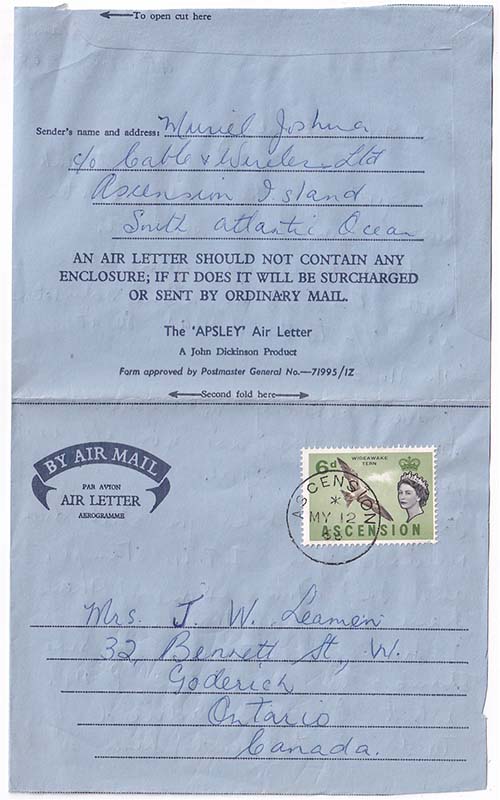 To open cut here
Sender's name and address: Muriel Joshua
c/o Cable & Wireless Ltd
Ascension Island
South Atlantic Ocean
AN AIR LETTER SHOULD NOT CONTAIN ANY
ENCLOSURE; IF IT DOES IT WILL BE SURCHARGED
OR SENT BY ORDINARY MAIL.
The 'APSLEY' Air Letter
A John Dickinson Product
Form approved by Postmaster General No.—71995/1Z
Second fold here
BY AIR MAIL
PAR AVION
AIR LETTER
AEROGRAMME
6d
WIDEAWAKE
TERN
ASCENSION
ASCENSION
MY 12
Mrs. J. W. Leamen
32, Bennett St., W.
Goderich
Ontario
Canada.